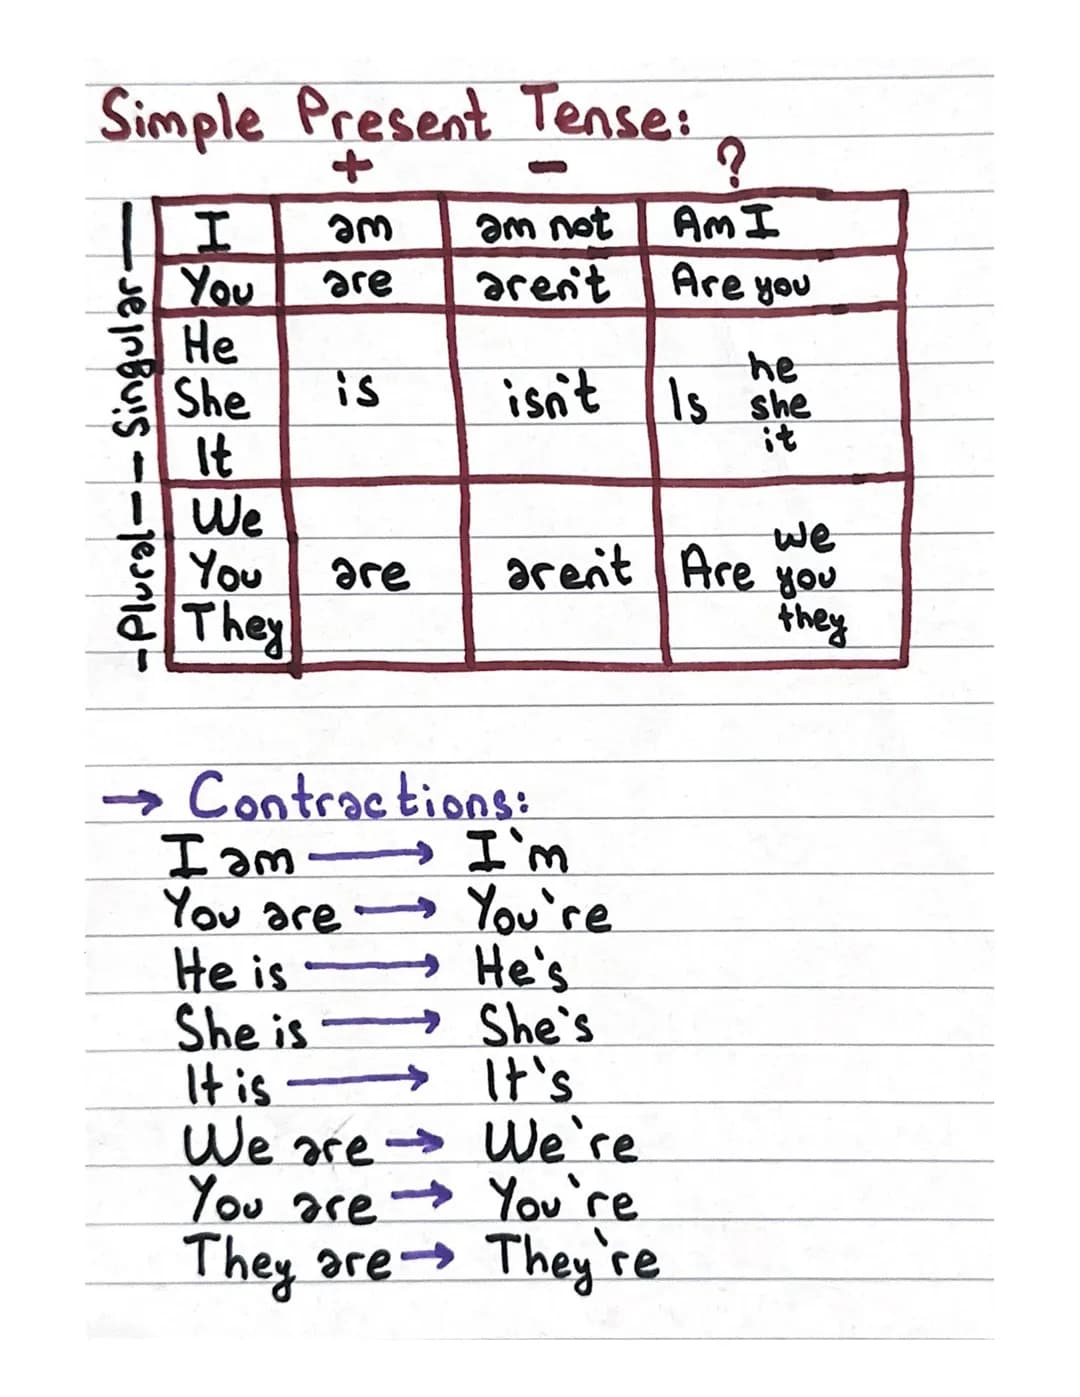 Simple Present Tense:
+ - ?
I am am not Am I
You are aren't Are you
He
She is isn't Is he she it
It
We
You are aren't Are we you they
They
Singular
Plural
→ Contractions:
I am → I'm
You are → You're
He is → He's
She is → She's
It is → It's
We are → We're
You are → You're
They are → They're